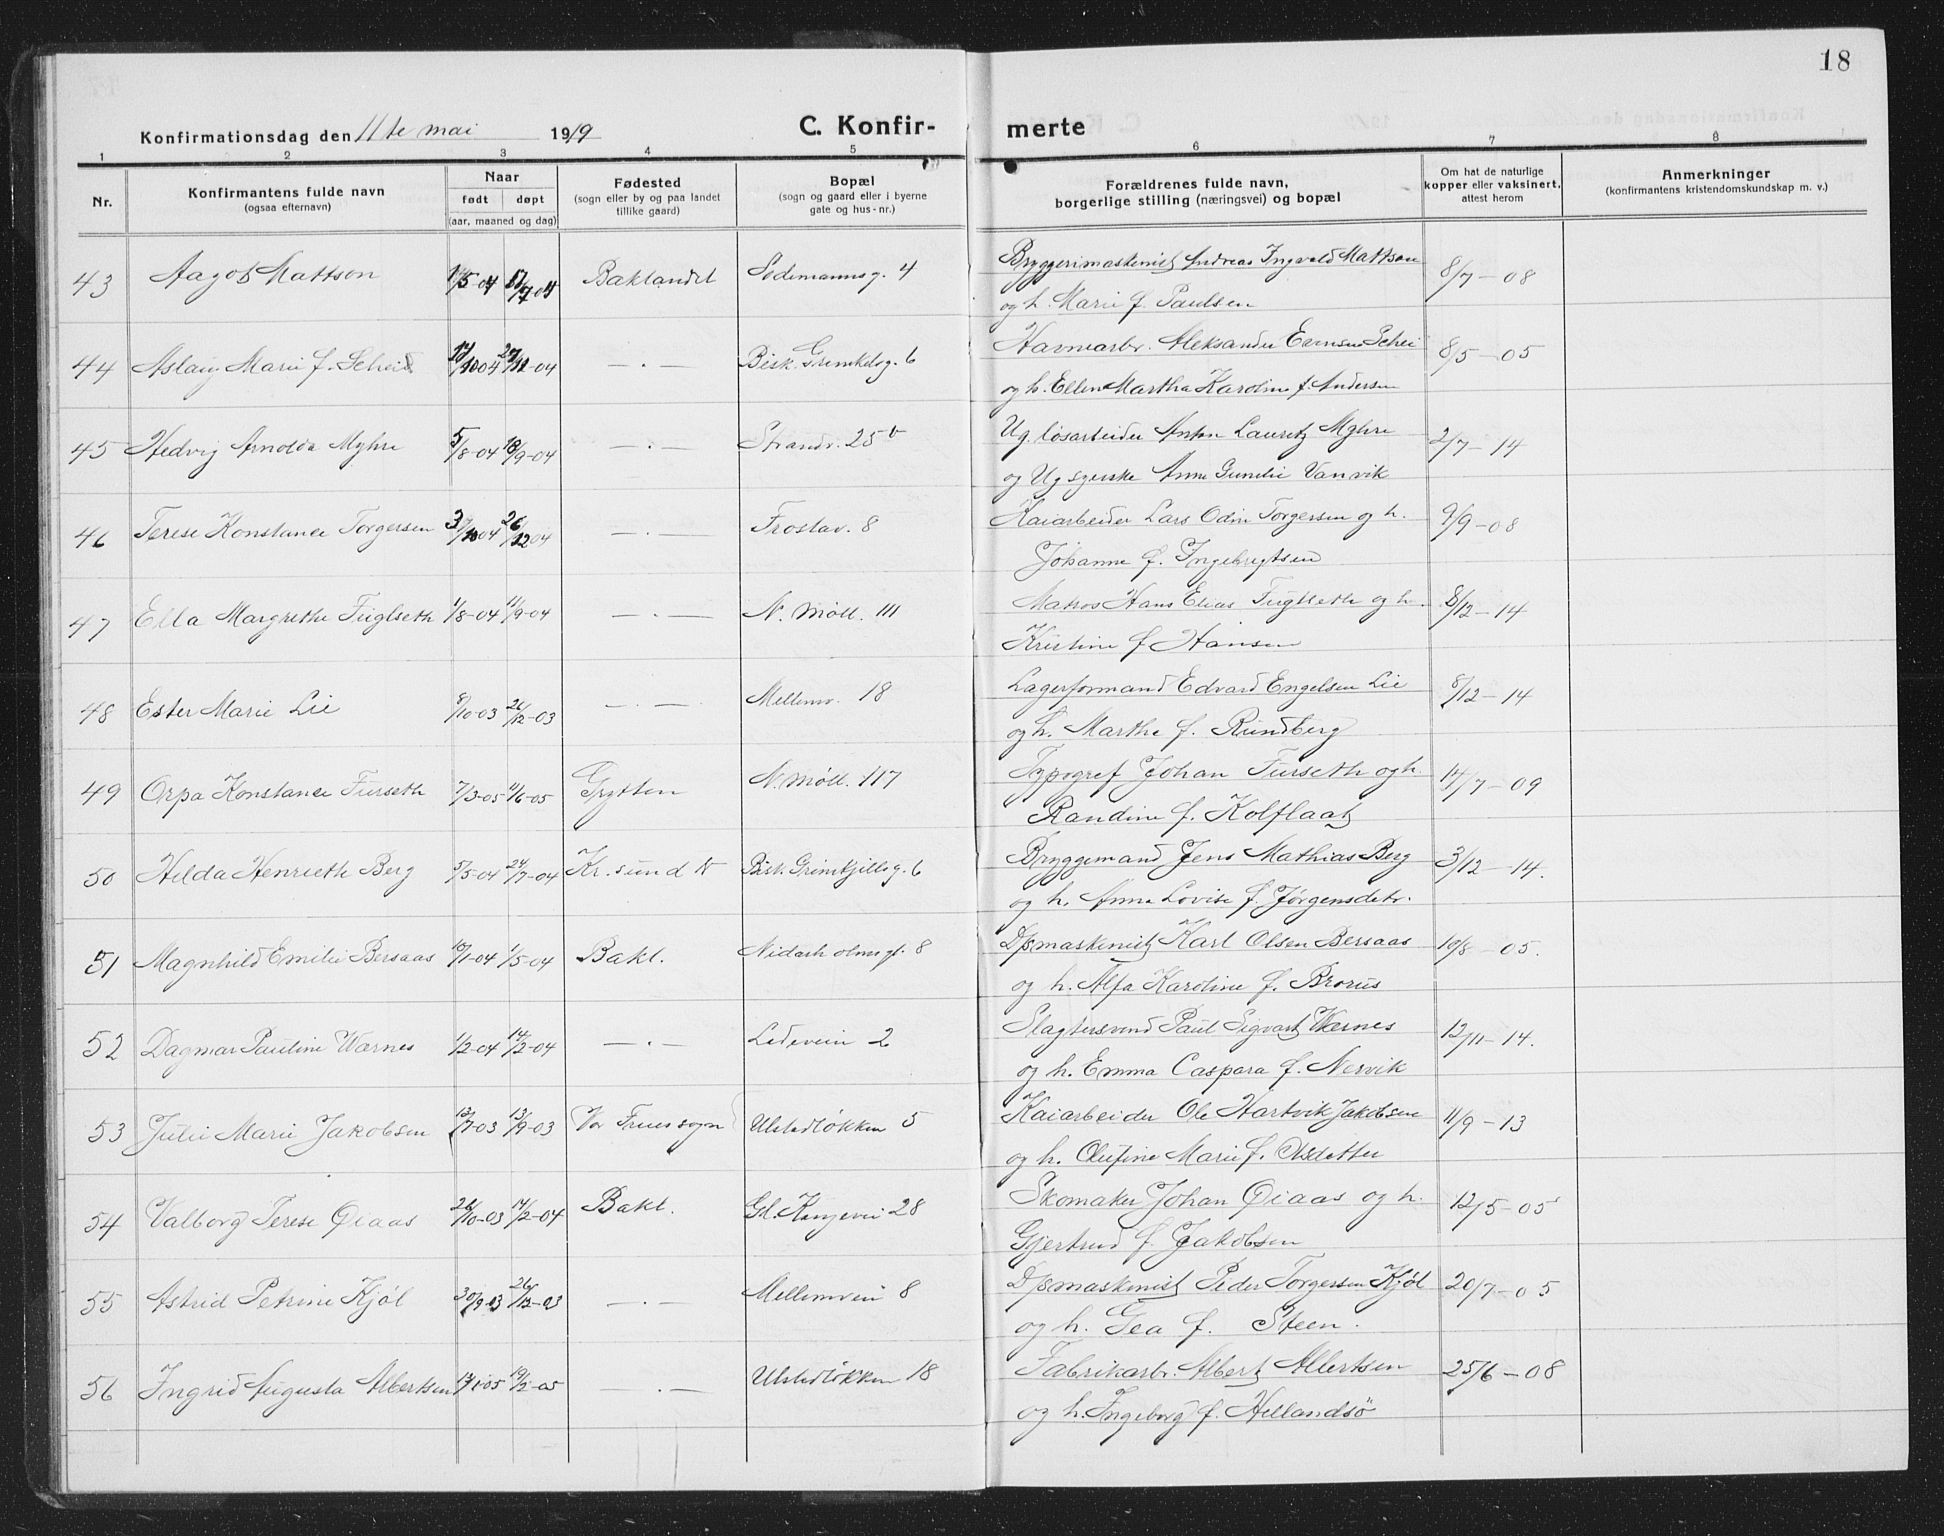 18
Konfirmationsdag den 11te mai 1919 C. Konfirmerte
1 2 3 4 5 6 7 8
Nr. Konfirmantens fulde navn (ogsaa efternavn) Naar født døpt (aar, maaned og dag) Fødested (sogn eller by og paa landet tillike gaard) Bopæl (sogn og gaard eller i byerne gate og hus-nr.) Forældrenes fulde navn, borgerlige stilling (næringsvei) og bopæl Om hat de naturlige kopper eller vaksinert, attest herom Anmerkninger (konfirmantens kristendomskundskap m. v.)
43 Aagot Mattson Baklandet 4 Bryggerimaskenist Andreas Ingvald Mattson 8/7-08
og h. Marie f. Paulsen
44 Aslaug Marie f. Schei -.- Bisk. Grimkelsg. 6 Havnearbr. Aleksander Schei 8/5-05
og h. Ellen Martha Karoline f. Andersen
45 Hedvig Arnolda Myhre 5/8-04 18/9-04 -.- Strandv. 25 b Ug. løsarbeider Anton Lauretz Myhre 2/7-14
og Ug syerske Anne Gunelie Vanvik
46 Terese Konstance Torgersen 3/10 04 26/12 04 -.- Frostav. 8 Kaiarbeider Lars Odin Torgersen og h. 9/9-08
Johanne f. Ingebrigtsen
47 Ella Margrethe Fuglseth 1/8-04 11/9-04 -.- N. Møll. 111 Matros Hans Elias Fuglseth og h. 8/12-14
Kristine f Hansen
48 Ester Marie Lie 8/10-03 26/12-03 -.- Mellemv. 18 Lagerformand Edvard Engelsen Lie 8/12-14
og h. Marthe f. Rundberg
49 Orpa Konstance Furseth 7/3-05 11/6-05 Grytten N. Møll. 117 Typograf Johan Furseth og h. 14/7-09
Randine f. Kolflaat
50 Hilda Henrieth Berg 5/5-04 24/7-04 Kr. sund N Bisk. Grimkjellsg. 6 Bryggemand Jens Mathias Berg 3/12-14.
og h. Anne Lovise f. Jørgensdetr.
51 Magnhild Emilie Bersaas 10/1-04 1/5-04 Bakl. Nidarholmsgt. 8 Dpsmaskenist Karl Olsen Bersaas 19/8-05.
og h. Alfa Karoline f. Brorus
52 Dagmar Pauline Wærnes 1/2-04 14/2-04 -.- Ledeveien 2 Slagtersvend Paul Sigvart Wærnes 12/11-14.
og h. Emma Caspara f. Nesvik
53 Julie Marie Jakobsen 12/7-03 13/9-03 Vor Frues sogn Ulstadløkken 5 Kaiarbeider Ole Hartvik Jakobsen 11/9-13
og h. Olufine Marie f. Olsdetter
54 Valborg Terese Øiaas 28/10-03 14/2-04 Bakl. Gl. Kongevei 28 Skomaker Johan Øiaas og h. 12/5-05
Gjertrud f. Jakobsen
55 Astrid Petrine Kjøl 30/9-03 26/12-03 -.- Mellemveien 8 Dpsmaskenist Peder Torgersen Kjøl 20/7-05
og h. Gea f. Steen.
56 Ingrid Augusta Albertsen 19/2-05 .- Ulstadløkken 18 Fabrikarbr. Albert Albertsen 25/6-08
og h. Ingeborg f. Hellandsö